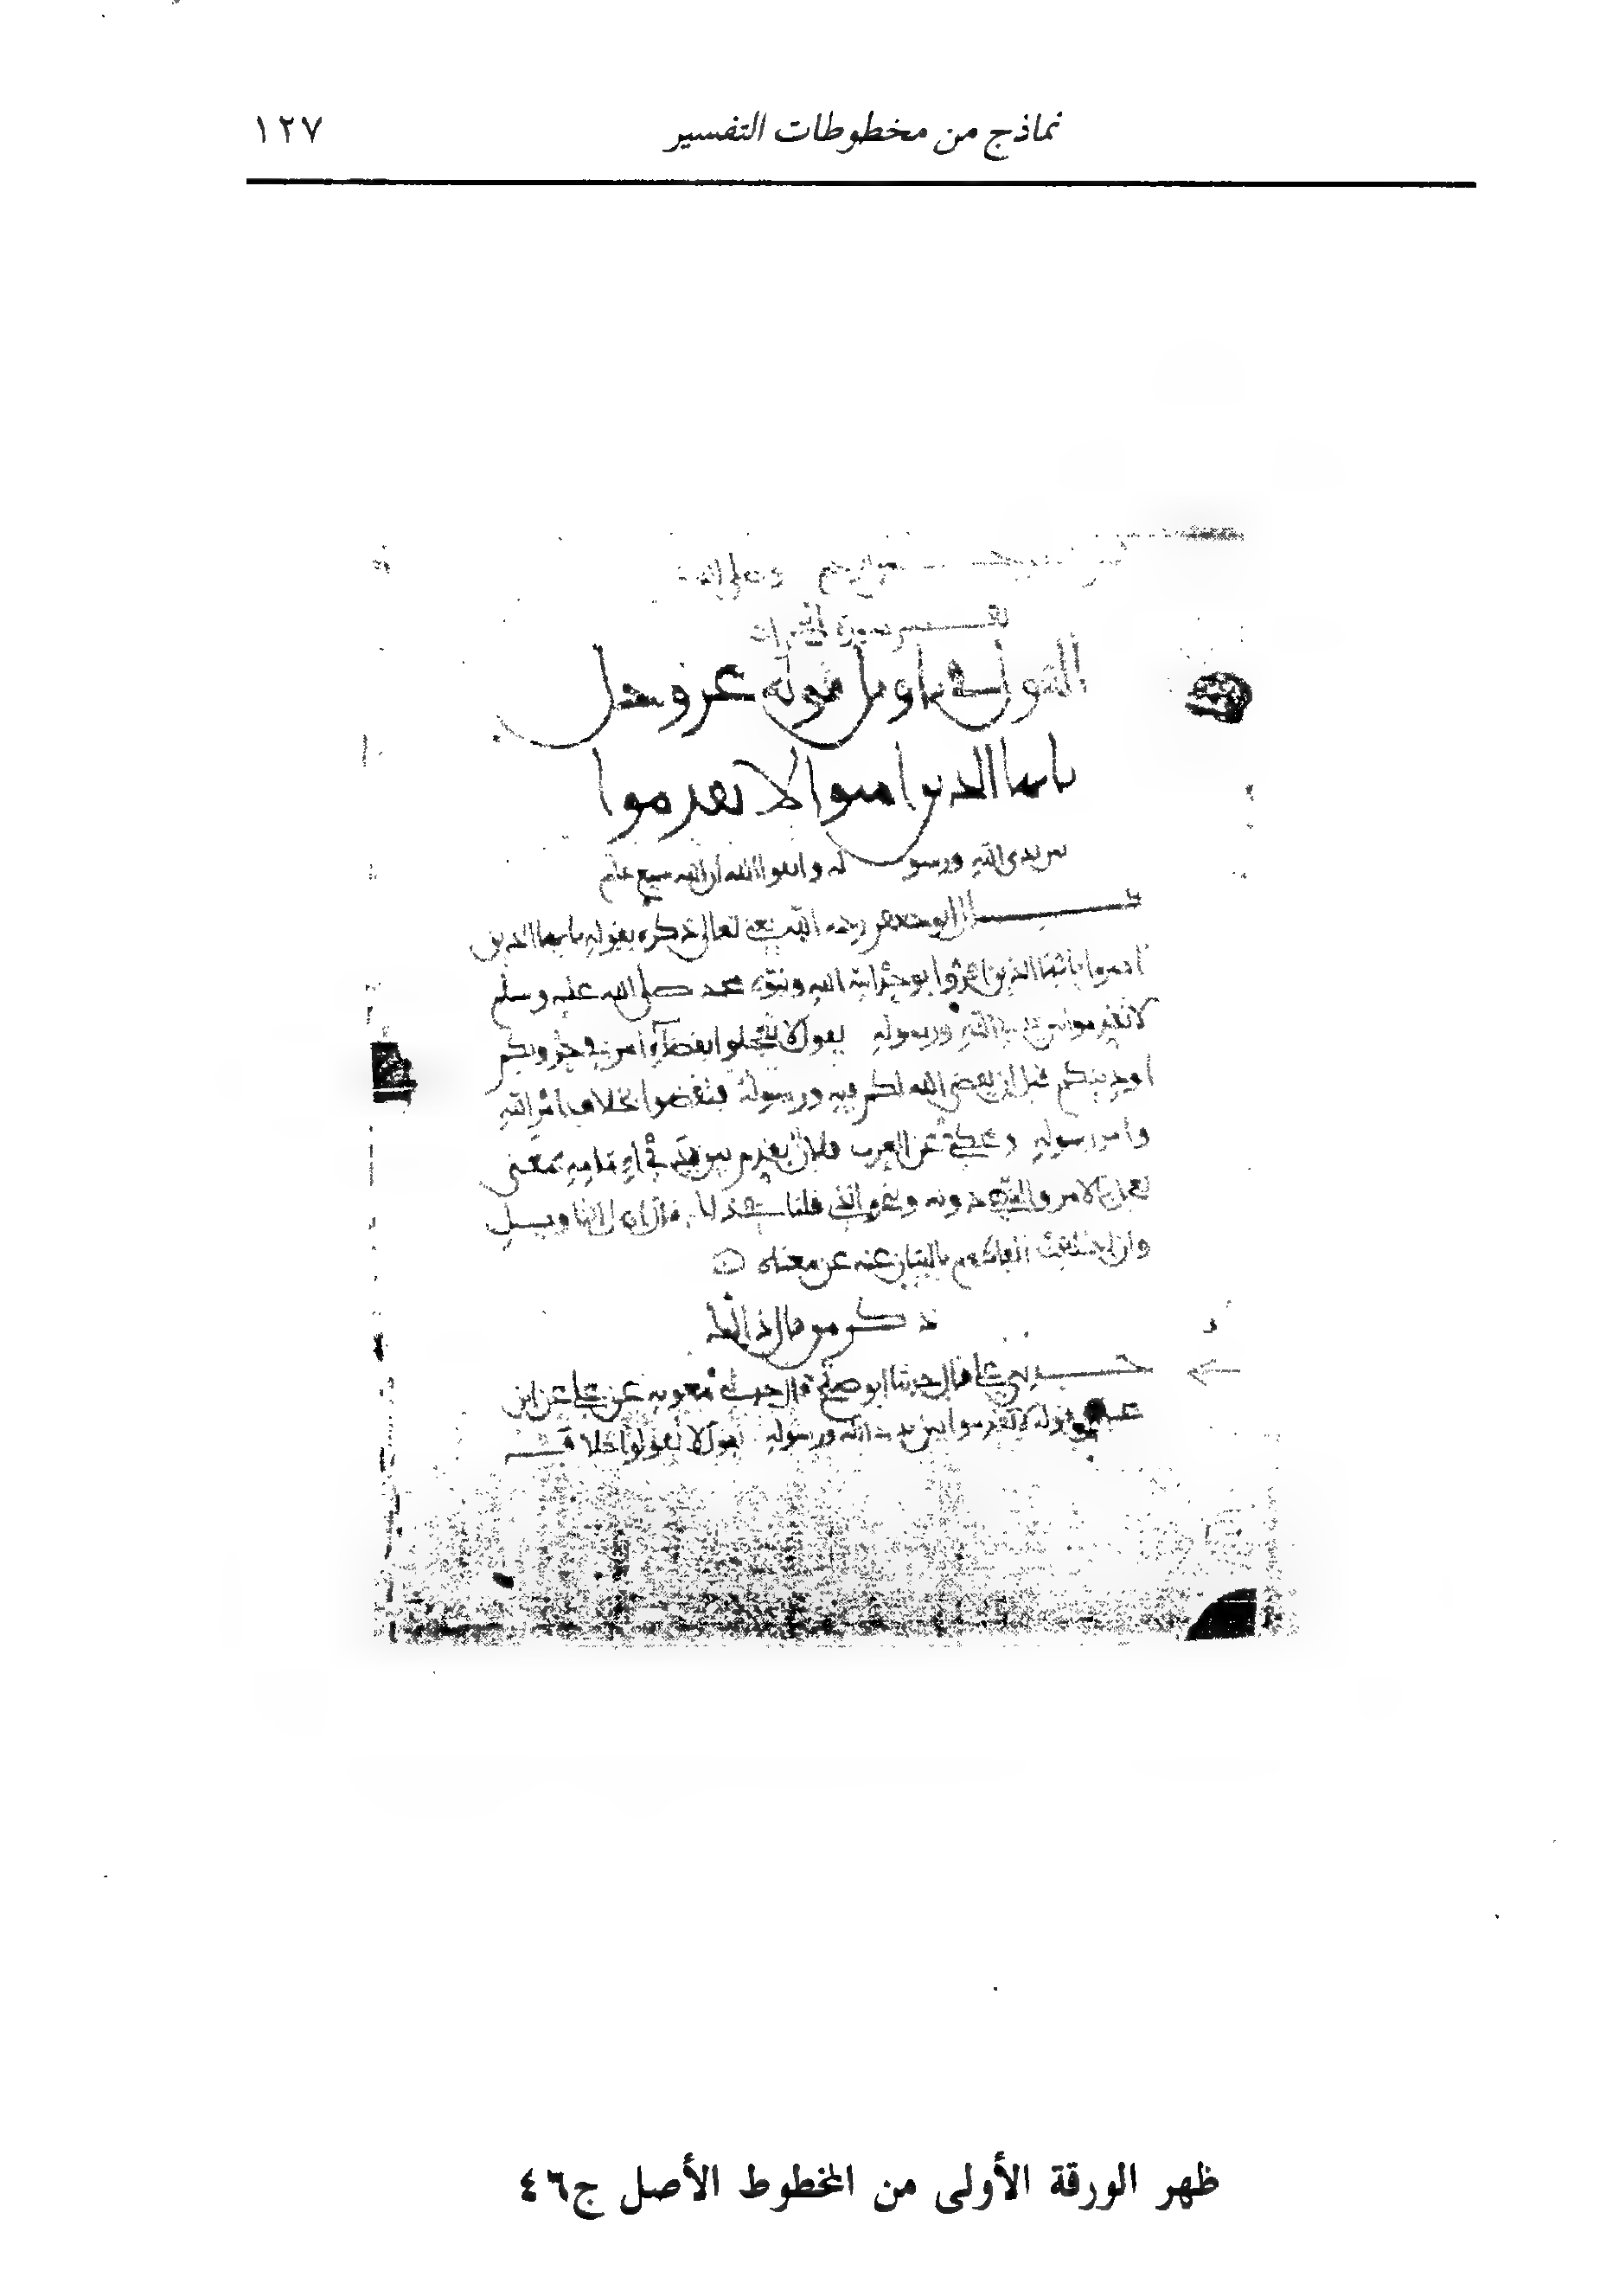 نماذج من مخطوطات التفسير
١٢٧
الرحيم وصلى الله
تفسير سورة الحجرات
القول في تاويل قوله عز وجل
يايها الذين امنوا لا تقدموا
بين يدي الله ورسوله واتقوا الله ان الله سميع عليم
قال ابو جعفر رحمه الله يعني تعالى ذكره بقوله يايها الذين
امنوا يا ايها الذين اقروا بوحدانية الله ونبوة محمد صلى الله عليه وسلم
لا تقدموا بين يدي الله ورسوله يقول لا تعجلوا بقضاء امر في حروبكم
او دينكم قبل ان يقضي الله لكم فيه ورسوله فتقضوا بخلاف امر الله
وامر رسوله محكي عن العرب فلان يقدم بين يدي امامه بمعنى
يعجل بالامر والنهي دونه وبنحو الذي قلنا في ذلك قال اهل التاويل
وان اختلفت الفاظهم بالبيان عنه عن معناه
ذكر من قال ذلك
حدثني علي قال حدثنا ابو صالح قال حدثني معوية عن علي عن ابن
عباس قوله لا تقدموا بين يدي الله ورسوله يقول لا تقولوا خلاف
ظهر الورقة الأولى من المخطوط الأصل ج٤٦